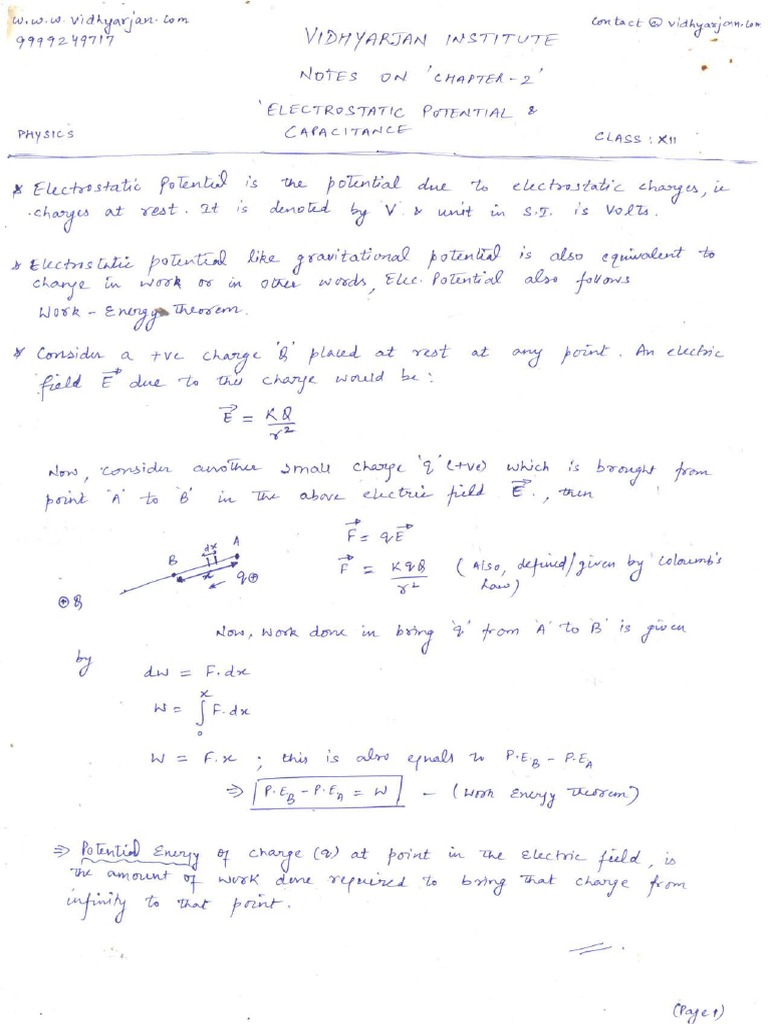 w.w.w. vidhyarjan.com
contact @ vidhyarjan.com
9999249717
VIDHYARJAN INSTITUTE
NOTES ON 'CHAPTER-2'
'ELECTROSTATIC POTENTIAL &
PHYSICS
CAPACITANCE
CLASS : XII
* Electrostatic Potential is the potential due to electrostatic charges, ie
charges at rest. It is denoted by V & unit in S.I. is Volts.
* Electrostatic potential like gravitational potential is also equivalent to
change in work or in other words, Elec. Potential also follows
Work - Energy Theorem.
* Consider a +ve charge 'Q' placed at rest at any point. An electric
field E⃗ due to this charge would be:
E⃗ = KQ/r²
Now, consider another small charge 'q' (+ve) which is brought from
point 'A' to 'B' in the above electric field E⃗., then
F⃗ = qE⃗
F⃗ = KqQ/r² (Also, defined/given by Coloumb's
Law)
dx
A
B
x
q⊕
⊕Q
Now, work done in bring 'q' from 'A' to 'B' is given
by
dw = F.dx
W = ∫₀ˣ F.dx
W = F.x ; this is also equals to P.E_B - P.E_A
⇒ P.E_B - P.E_A = W - (Work Energy Theorem)
⇒ Potential Energy of charge (q) at point in the electric field, is
the amount of work done required to bring that charge from
infinity to that point.
(Page 1)